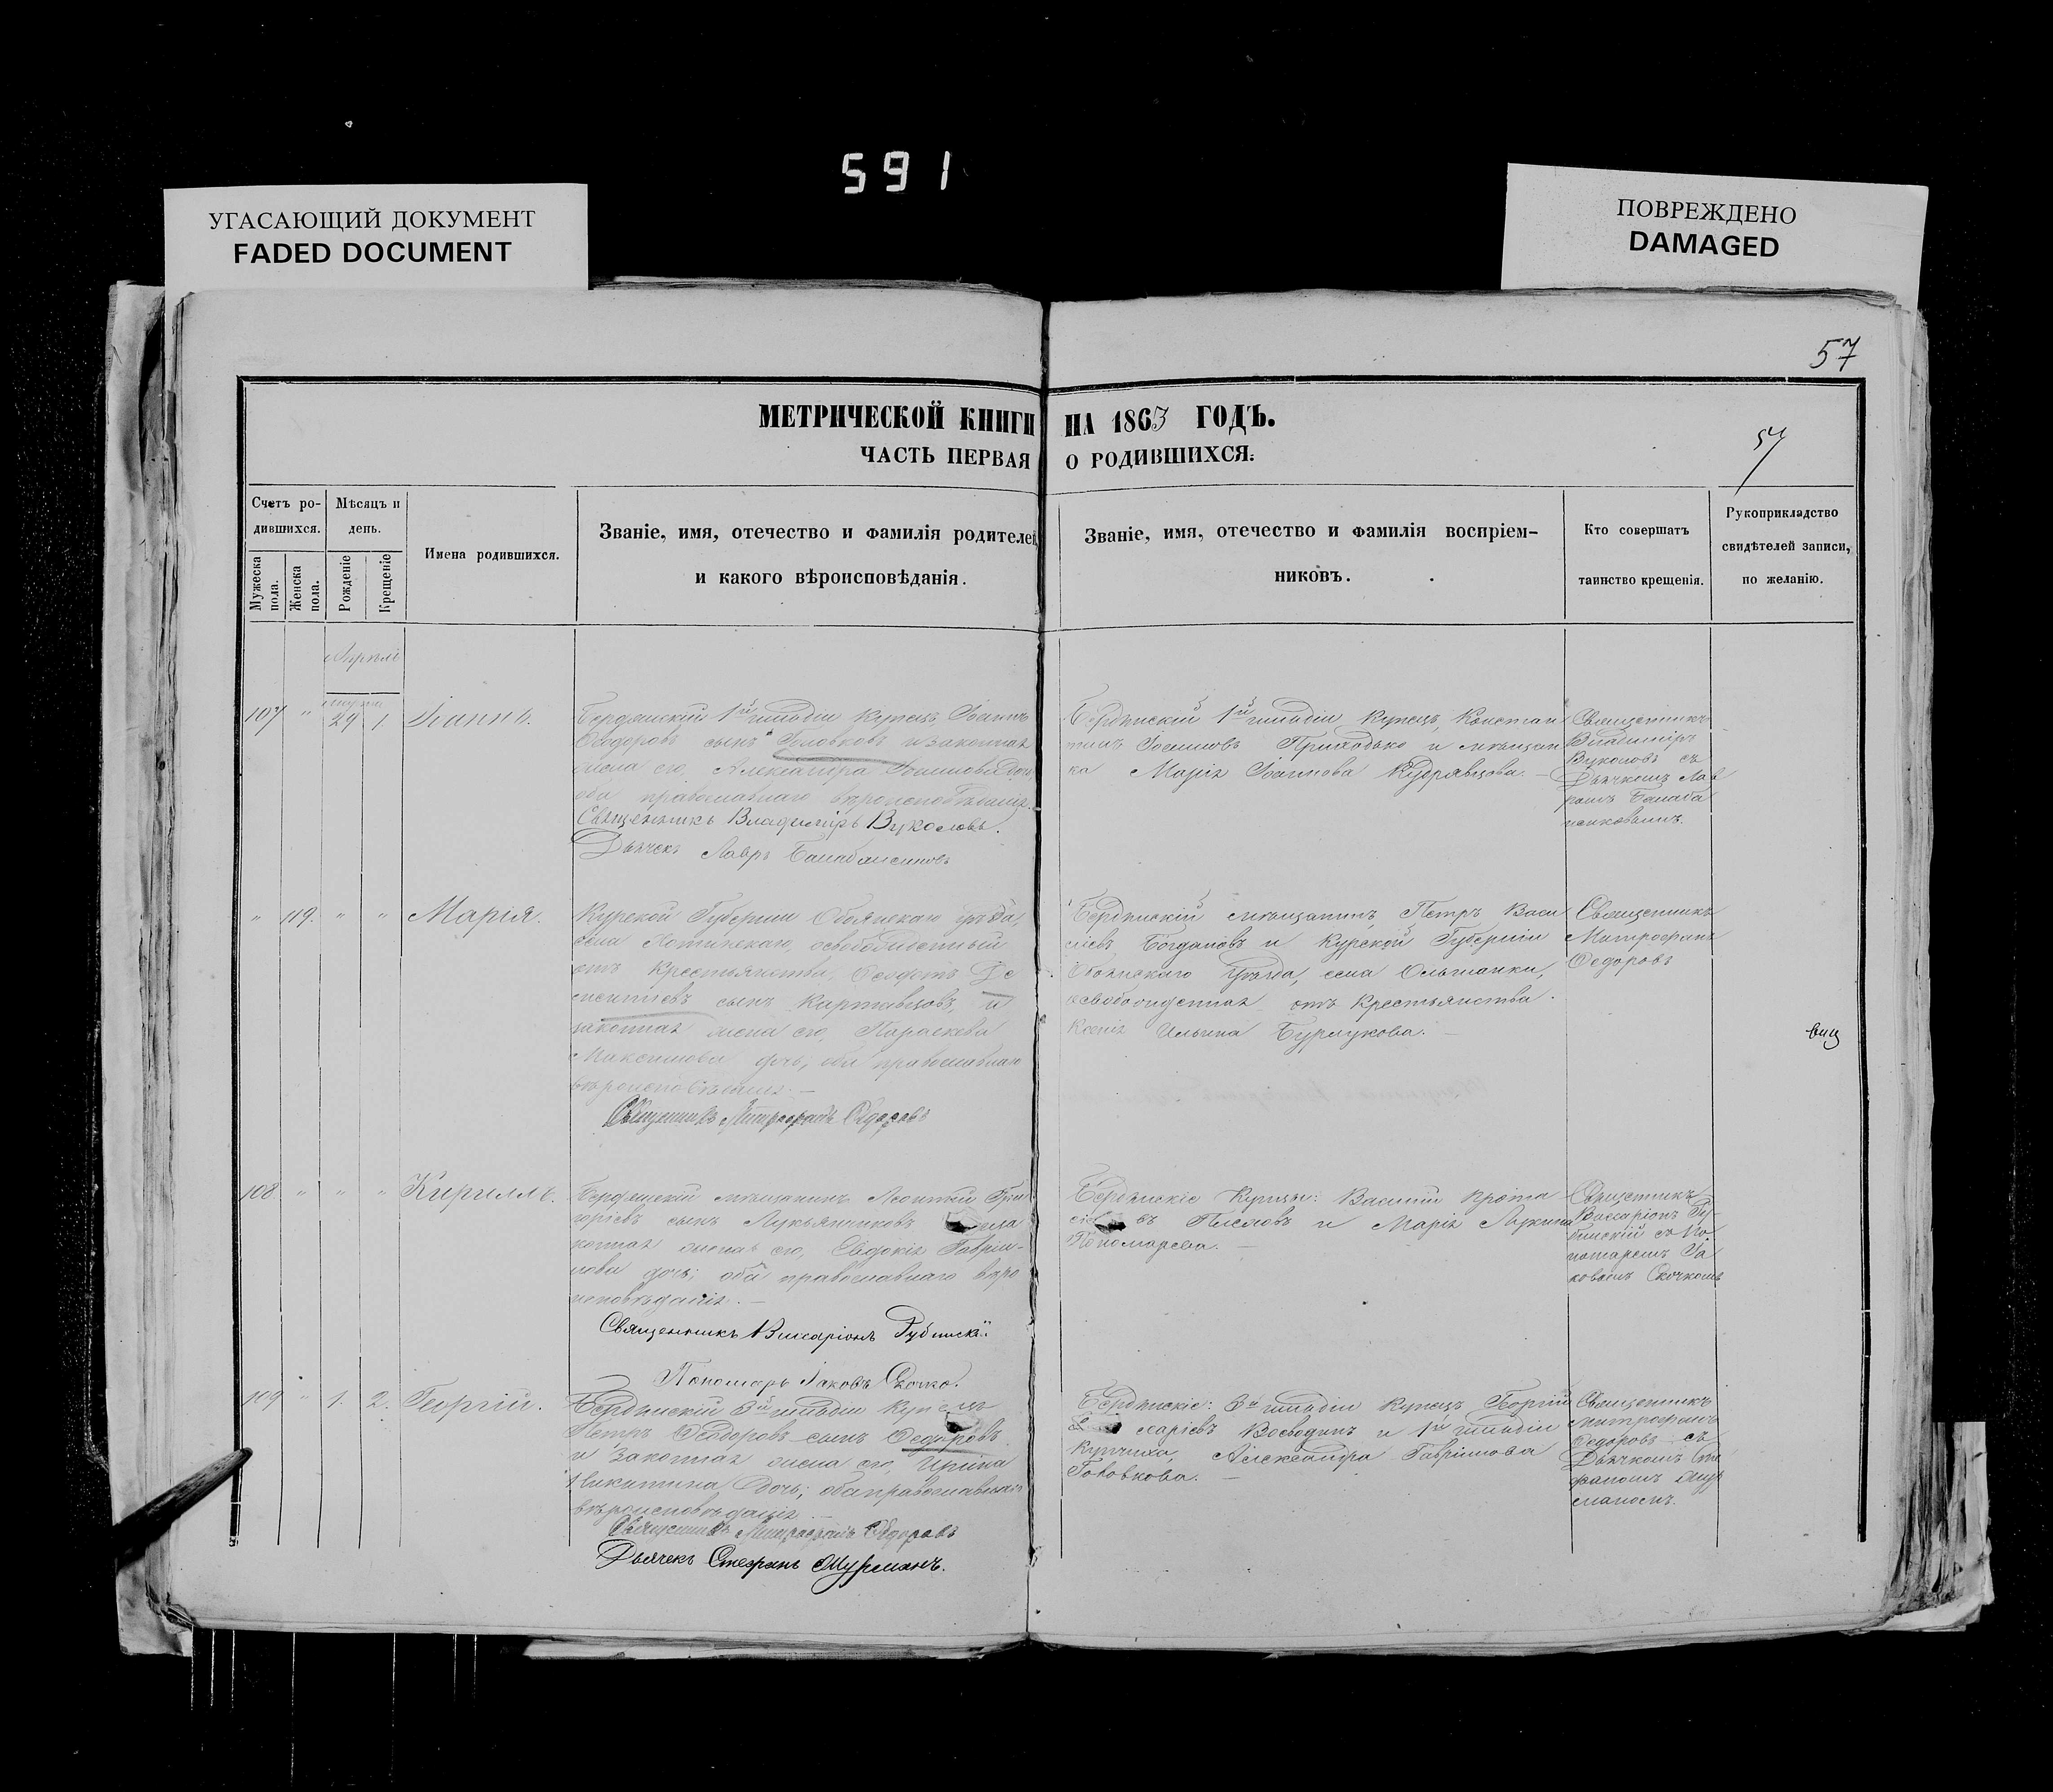 591
УГАСАЮЩИЙ ДОКУМЕНТ
FADED DOCUMENT
ПОВРЕЖДЕНО
DAMAGED
57
МЕТРИЧЕСКОЙ КНИГИ НА 1863 ГОДЪ.
ЧАСТЬ ПЕРВАЯ О РОДИВШИХСЯ.
57
Счетъ ро-
дившихся.
Мужеска
пола.
Женска
пола.
Мѣсяцъ и
день.
Рожденіе
Крещеніе
Имена родившихся.
Званіе, имя, отечество и фамилія родителей
и какого вѣроисповѣданія.
Званіе, имя, отечество и фамилія воспріем-
никовъ.
Кто совершатъ
таинство крещенія.
Рукоприкладство
свидѣтелей записи,
по желанію.
107 " 29 1 Іоаннъ.
Бердянскій 1й гильдіи купецъ Іоаннъ
Ѳеодоровъ сынъ Головковъ и законная
жена его, Александра
оба православнаго вѣроисповѣданія.
Священникъ Владиміръ Вуколовъ.
Дьячекъ Лавръ
Бердянскій 1й гильдіи купецъ, Констан
тинъ Іосифовъ Приходько и мѣщан
ка Марія Іоаннова Кудрявцова. —
Священникъ
Владиміръ
Вуколовъ съ
Дьячкомъ Лав
ромъ
" 119. " " Марія.
Курской Губерніи Обоянскаго уѣзда,
села освобожденный
отъ крестьянства, Ѳеодотъ Де
ментіевъ сынъ Картавцовъ, и
законная жена его, Параскева
Максимова дочь, оба православнаго
вѣроисповѣданія. —
Священникъ Митрофанъ Ѳедоровъ
Бердянскій мѣщанинъ, Петръ Васи
ліевъ Богдановъ и Курской Губерніи
Обоянскаго уѣзда, села Ольшанки,
освобожденная отъ крестьянства
Ксенія Ильина Бурлукова. —
Священникъ
Митрофанъ
Ѳедоровъ
108 " " " Кириллъ.
Бердянскій мѣщанинъ Леонтій Гри
горіевъ сынъ Лукьянчиковъ и за
конная жена его, Евдокія Гаврии-
лова дочь; оба православнаго вѣро
исповѣданія. —
Священникъ Виссаріонъ
Пономарь Іаковъ Скочко.
Бердянскіе купцы: Василій
въ и Марія Лукина
Пономарева. —
Священникъ
Виссаріонъ
съ По
номаремъ Іа
ковомъ Скочкомъ
109 " 1. 2. Георгій.
Бердянскій 3й гильдіи купецъ
Петръ Ѳеодоровъ сынъ Ѳедоровъ
и законная жена его, Ирина
Никитина дочь; оба православнаго
вѣроисповѣданія. —
Священникъ Митрофанъ Ѳедоровъ
Дьячекъ Стефанъ Шурманъ.
Бердянскіе: 3й гильдіи купецъ Георгій
Воеводинъ и 1й гильдіи
купчиха, Александра Гавриилова
Головкова. —
Священникъ
Митрофанъ
Ѳедоровъ съ
Дьячкомъ Сте
фаномъ Шур
маномъ.